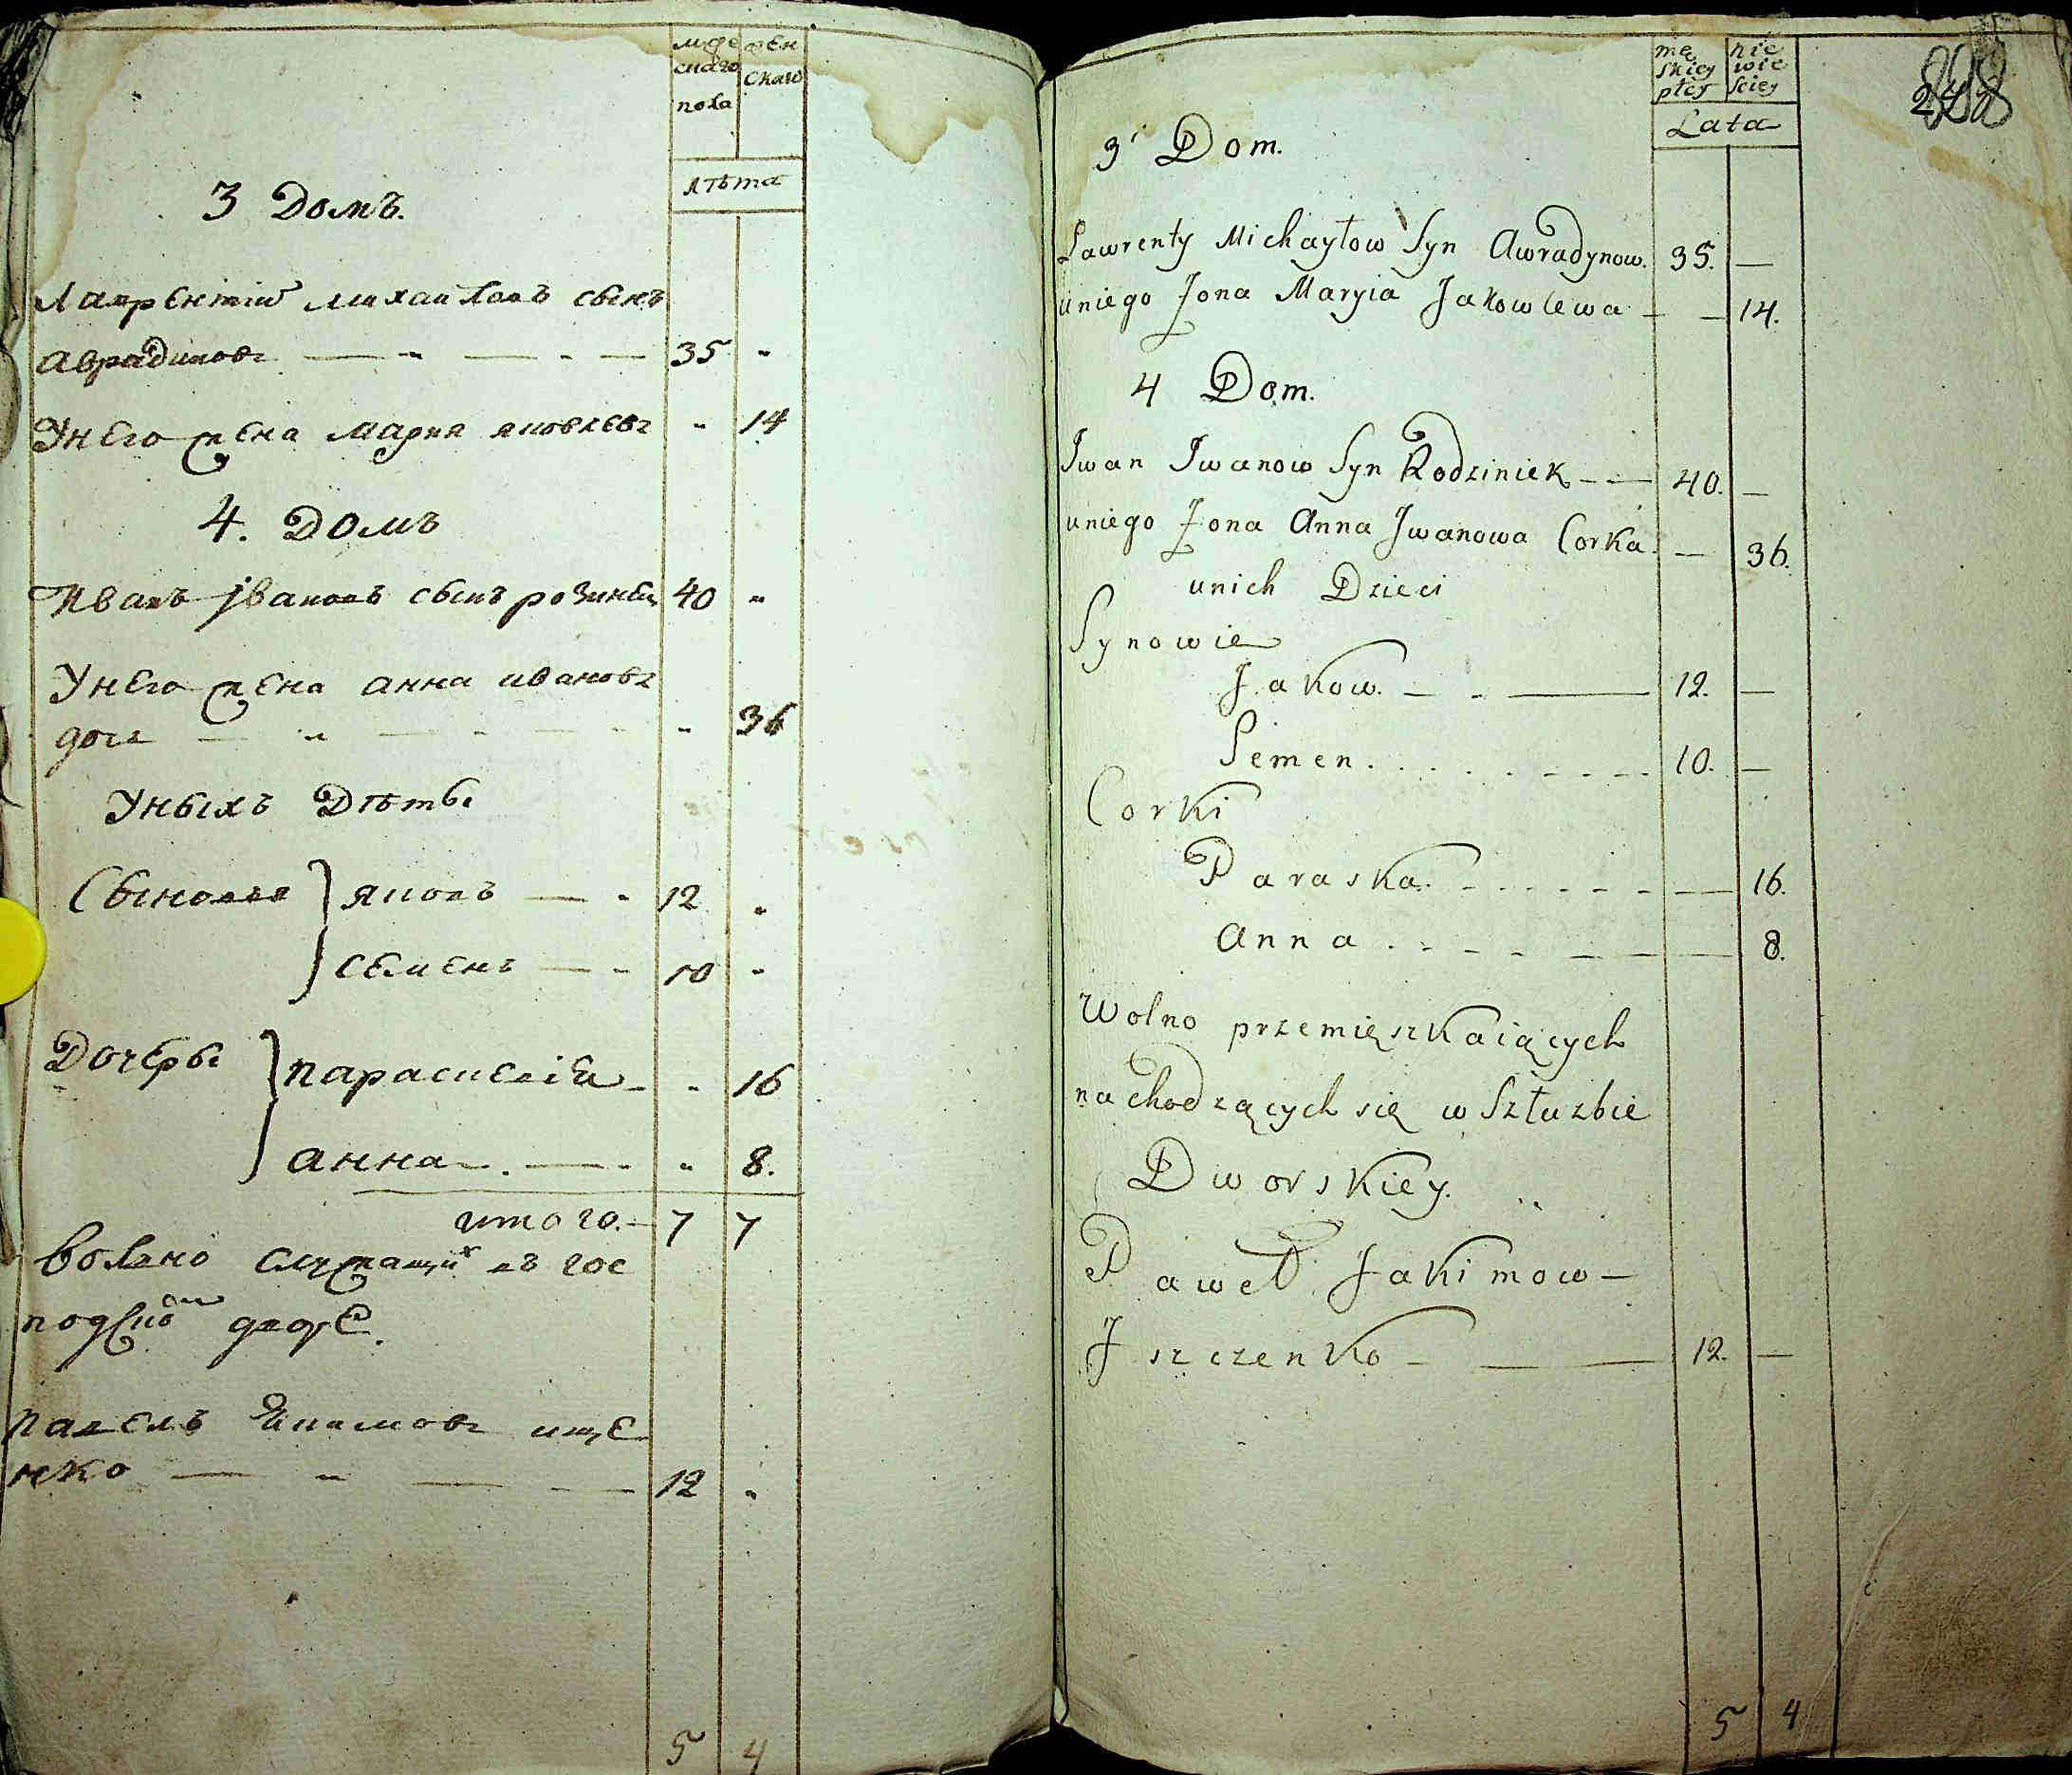 муже
скаго
пола
жен
скаго
лѣта
3 Домъ.
Лаврентий михайловъ сынъ
аврадиновъ — „ — - — 35 „
Унего жена мария яковлевъ „ 14
4. Домъ
Иванъ јвановъ сынъ розинец 40 „
Унего жена анна ивановъ
дочь — „ — - — - „ 36
Уныхъ Дѣты
Сыновья } яковъ — - 12 „
} семенъ — - 10 „
Дочеры } параскевiя - „ 16
} анна . — - „ 8.
итого. — 7 7
волно служащих въ гос
подской дворе.
павелъ Екимовъ ище
нко — „ — - — 12 „
5 4
mę
skiey
płey
nie
wie
sciey
Lata
248
3 Dom.
Ławrenty Michayłow Syn Awradynow. 35. —
uniego Żona Maryia Jakowlewa - — 14.
4 Dom.
Jwan Jwanow Syn Rodziniek - — 40. —
uniego Żona Anna Jwanowa Corka. — 36.
unich Dzieci
Synowie
Jakow. — - — 12. —
Semen. . . . . - - - - 10. —
Corki
Paraska. - - - - - - — 16.
Anna . - - - — - — 8.
Wolno przemięszkaiących
nachodzących się w Szłuzbie
Dworskiey.
Paweł Jakimow —
Jszczenko - — 12. —
5 4